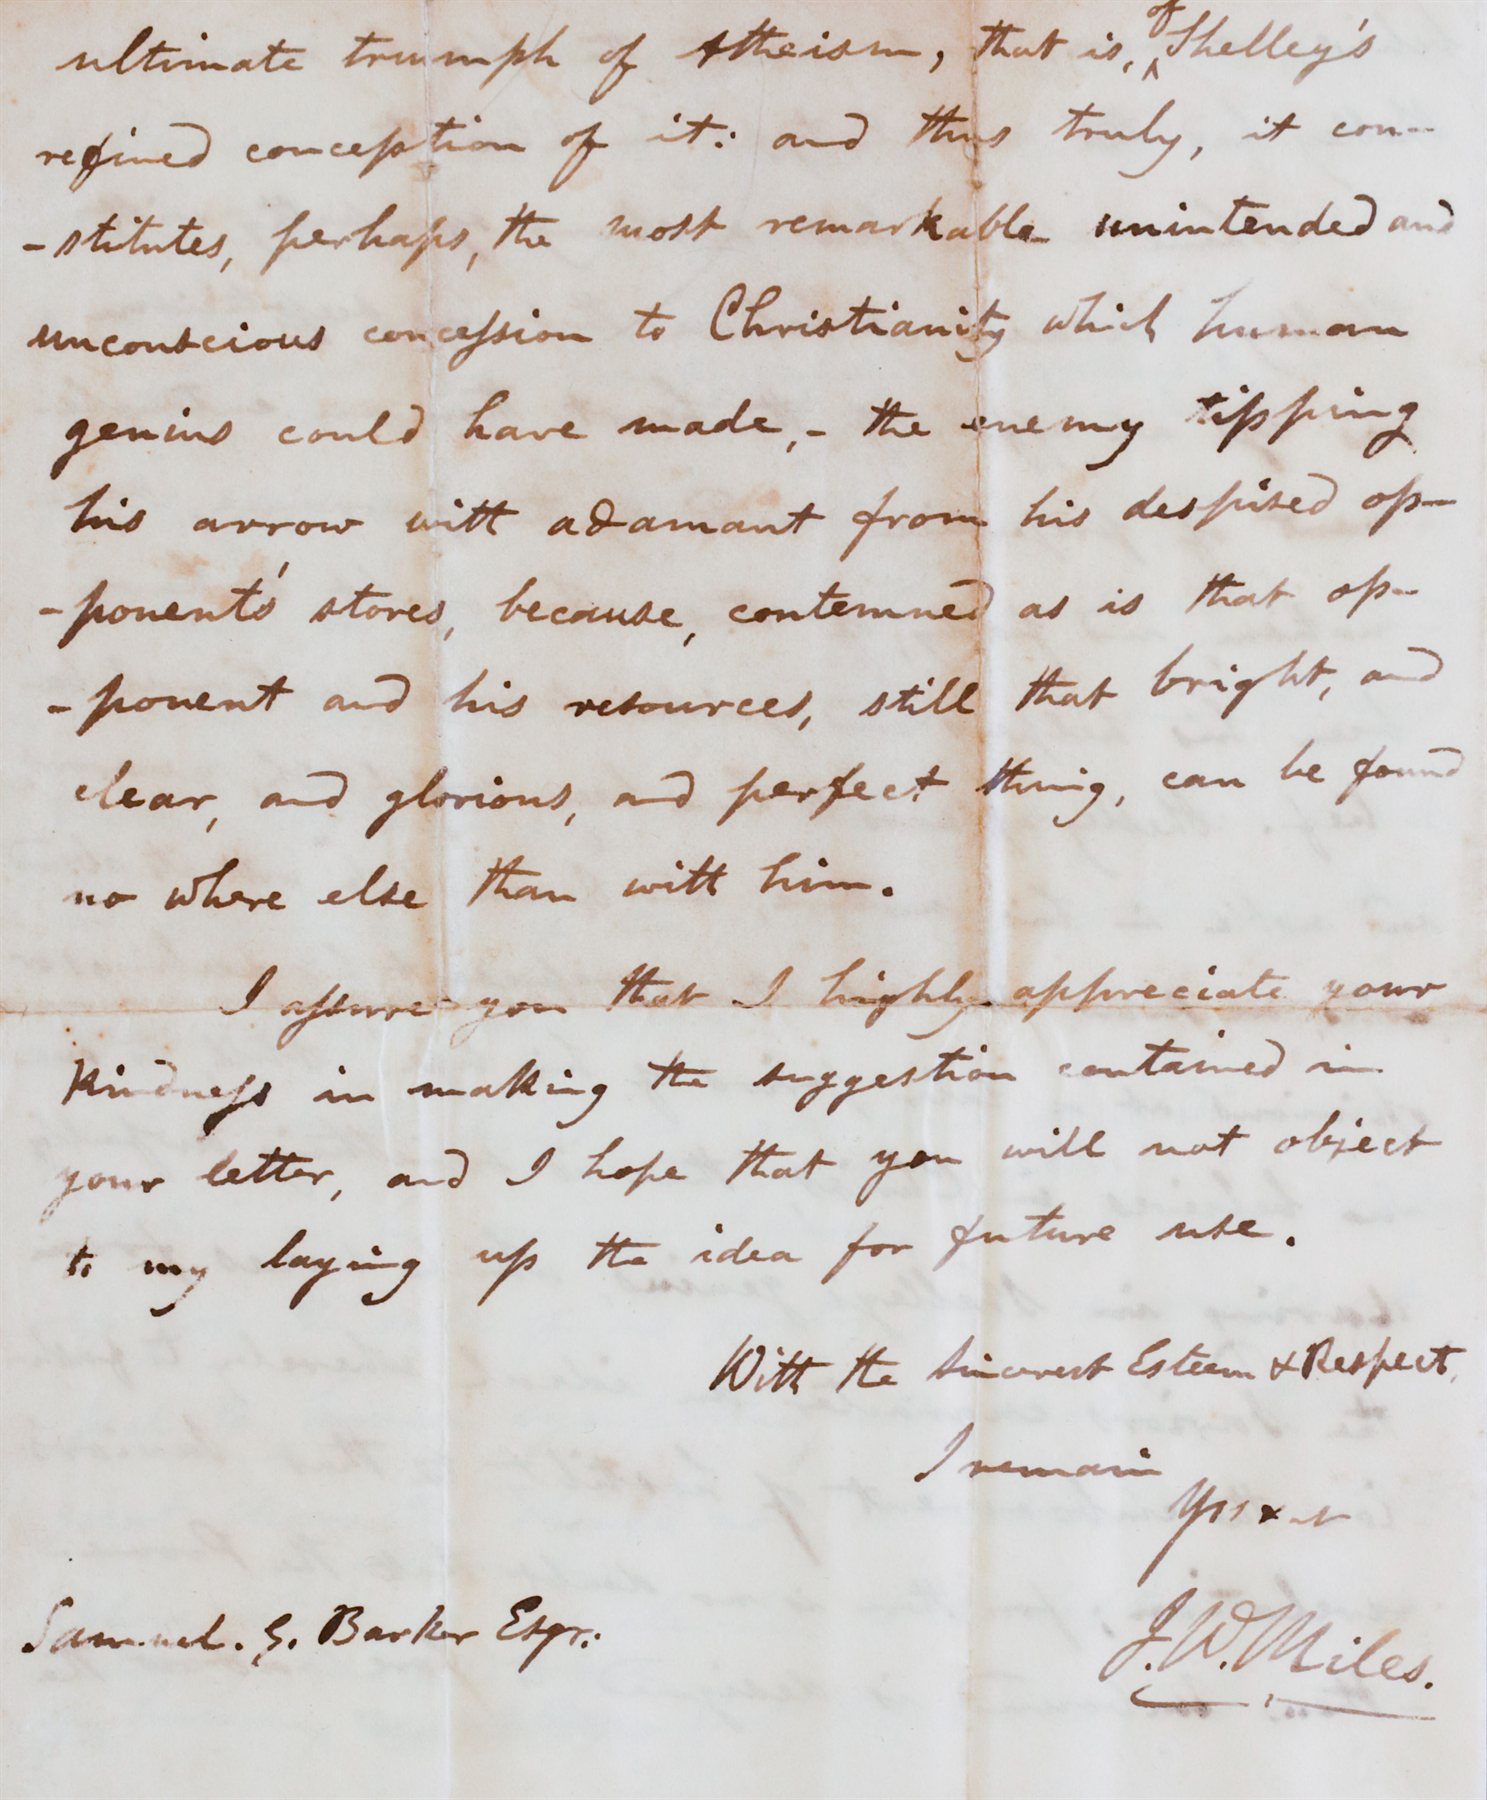 ultimate triumph of Atheism, that is, ^of Shelley's
refined conception of it: and thus truly, it con-
-stitutes, perhaps, the most remarkable unintended and
unconscious concession to Christianity which human
genius could have made, - the enemy tipping
his arrow with adamant from his despised op-
-ponent's stores, because, contemned as is that op-
-ponent and his resources, still that bright, and
clear, and glorious, and perfect thing, can be found
no where else than with him.
I assure you that I highly appreciate your
kindness in making the suggestion contained in
your letter, and I hope that you will not object
to my laying up the idea for future use.
With the sincerest Esteem & Respect,
I remain
Yrs &
J. W. Miles.
Samuel. G. Barker Esqr.